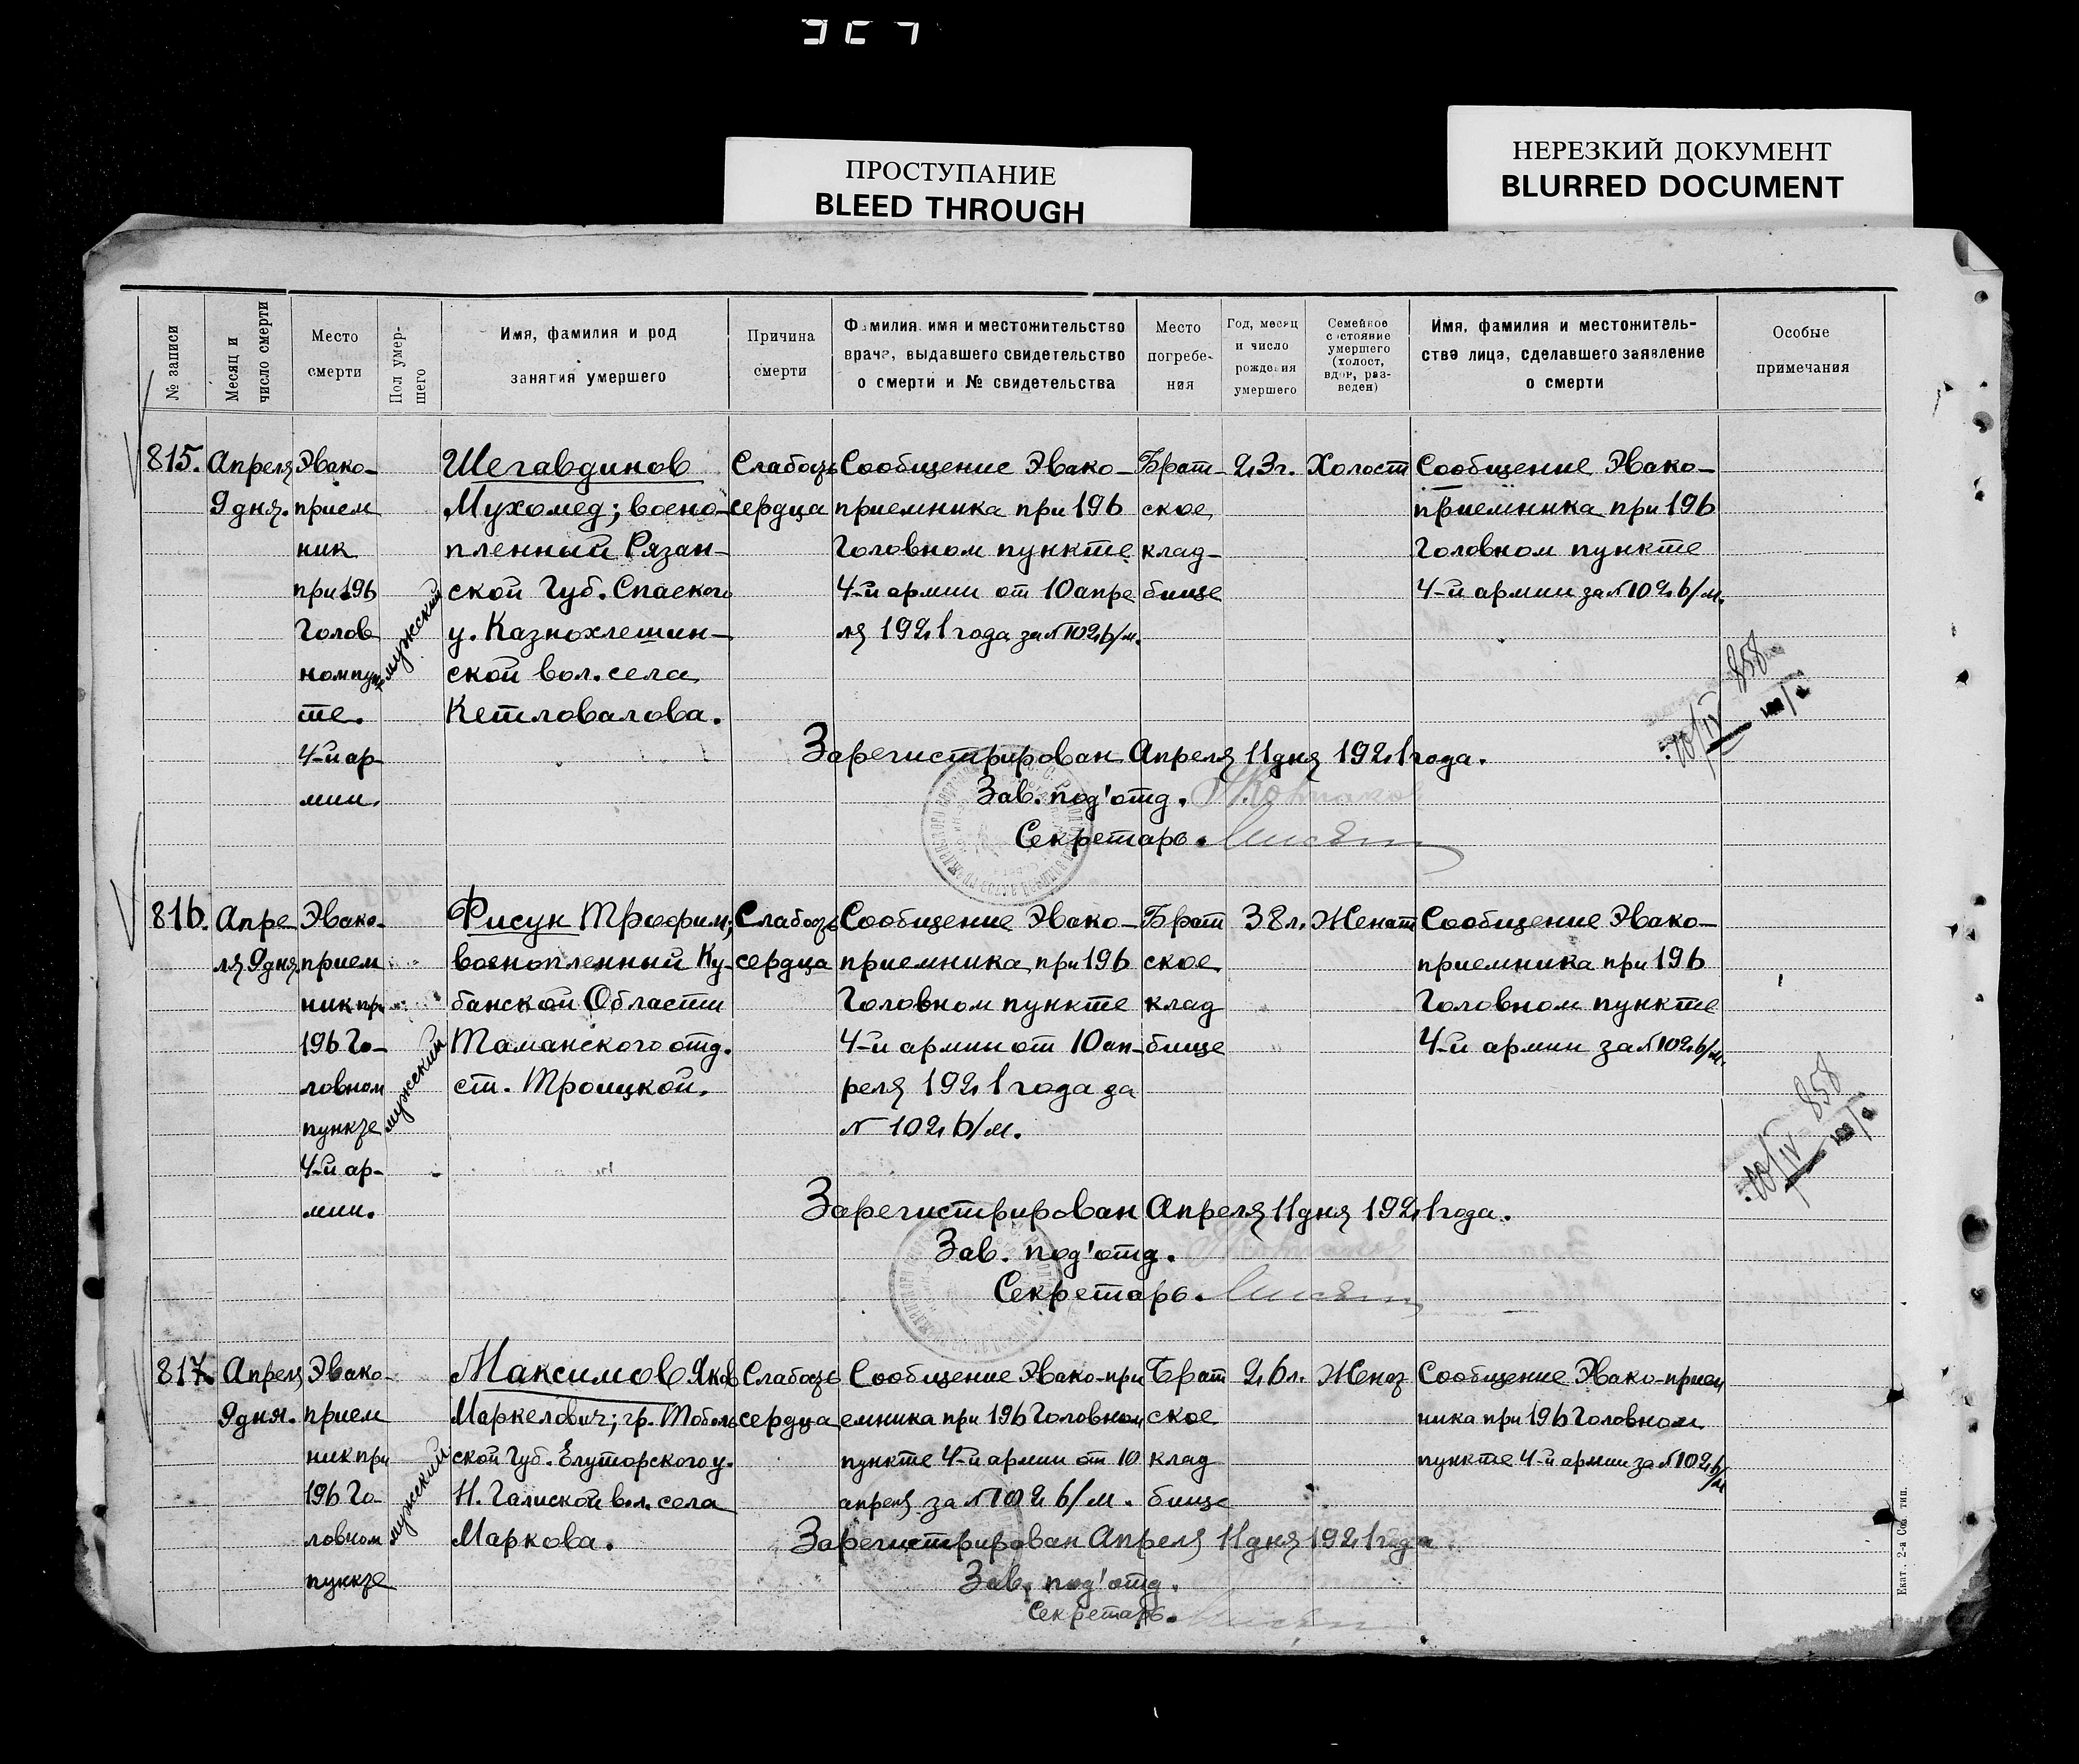 ПРОСТУПАНИЕ
BLEED THROUGH
НЕРЕЗКИЙ ДОКУМЕНТ
BLURRED DOCUMENT
№ записи
Месяц и
число смерти
Место
смерти
Пол умер-
шего
Имя, фамилия и род
занятия умершего
Причина
смерти
Фамилия, имя и местожительство
врача, выдавшего свидетельство
о смерти и № свидетельства
Место
погребе-
ния
Год, месяц
и число
рождения
умершего
Семейное
состояние
умершего
(холост,
вдов, раз-
веден)
Имя, фамилия и местожитель-
ство лица, сделавшего заявление
о смерти
Особые
примечания
815.
Апреля
9 дня.
Эвако-
прием
ник
при 196
Голов
ном пунк
те.
4-й ар-
мии.
мужской
Шегавдинов
Мухомед; воено-
пленный Рязан-
ской Губ. Спаского
у. Казнохлешин-
ской вол. села
Кетловалова.
Слабость
сердца
Сообщение Эвако-
приемника при 196
Головном пункте
4-й армии от 10 апре
ля 1921 года за № 1026/м.
Брат-
ское
клад-
бище
23 г.
Холост
Сообщение Эвако-
приемника при 196
Головном пункте
4-й армии за № 1026/м.
858
Зарегистрирован Апреля 11 дня 1921 года.
Зав. под'отд.
Секретарь.
816.
Апре
ля 9 дня.
Эвако-
прием
ник при
196 Го-
ловном
пункте
4-й ар-
мии.
мужской
Фисун Трофим;
военопленный Ку-
банской Области
Таманского отд.
ст. Троицкой.
Слабость
сердца
Сообщение Эвако-
приемника при 196
Головном пункте
4-й армии от 10 ап-
реля 1921 года за
№ 1026/м.
Брат
ское
клад
бище
38 л.
Женат
Сообщение Эвако-
приемника при 196
Головном пункте
4-й армии за № 1026/м.
858
Зарегистрирован Апреля 11 дня 1921 года.
Зав. под'отд.
Секретарь.
817.
Апреля
9 дня.
Эвако-
прием
ник при
196 Го-
ловном
пункте
мужской
Максимов Яков
Маркелович; гр. Тоболь
ской Губ. Елуторского у.
Н. Галиской вол. села
Маркова.
Слабость
сердца
Сообщение Эвако-при
емника при 196 Головном
пункте 4-й армии от 10
апреля за № 1026/м.
Брат
ское
клад
бище
26 л.
Женат
Сообщение Эвако-прием
ника при 196 Головном
пункте 4-й армии за № 1026/м
Зарегистрирован Апреля 11 дня 1921 года
Зав. под'отд.
Секретарь.
Екат. 2-а Сов. тип.